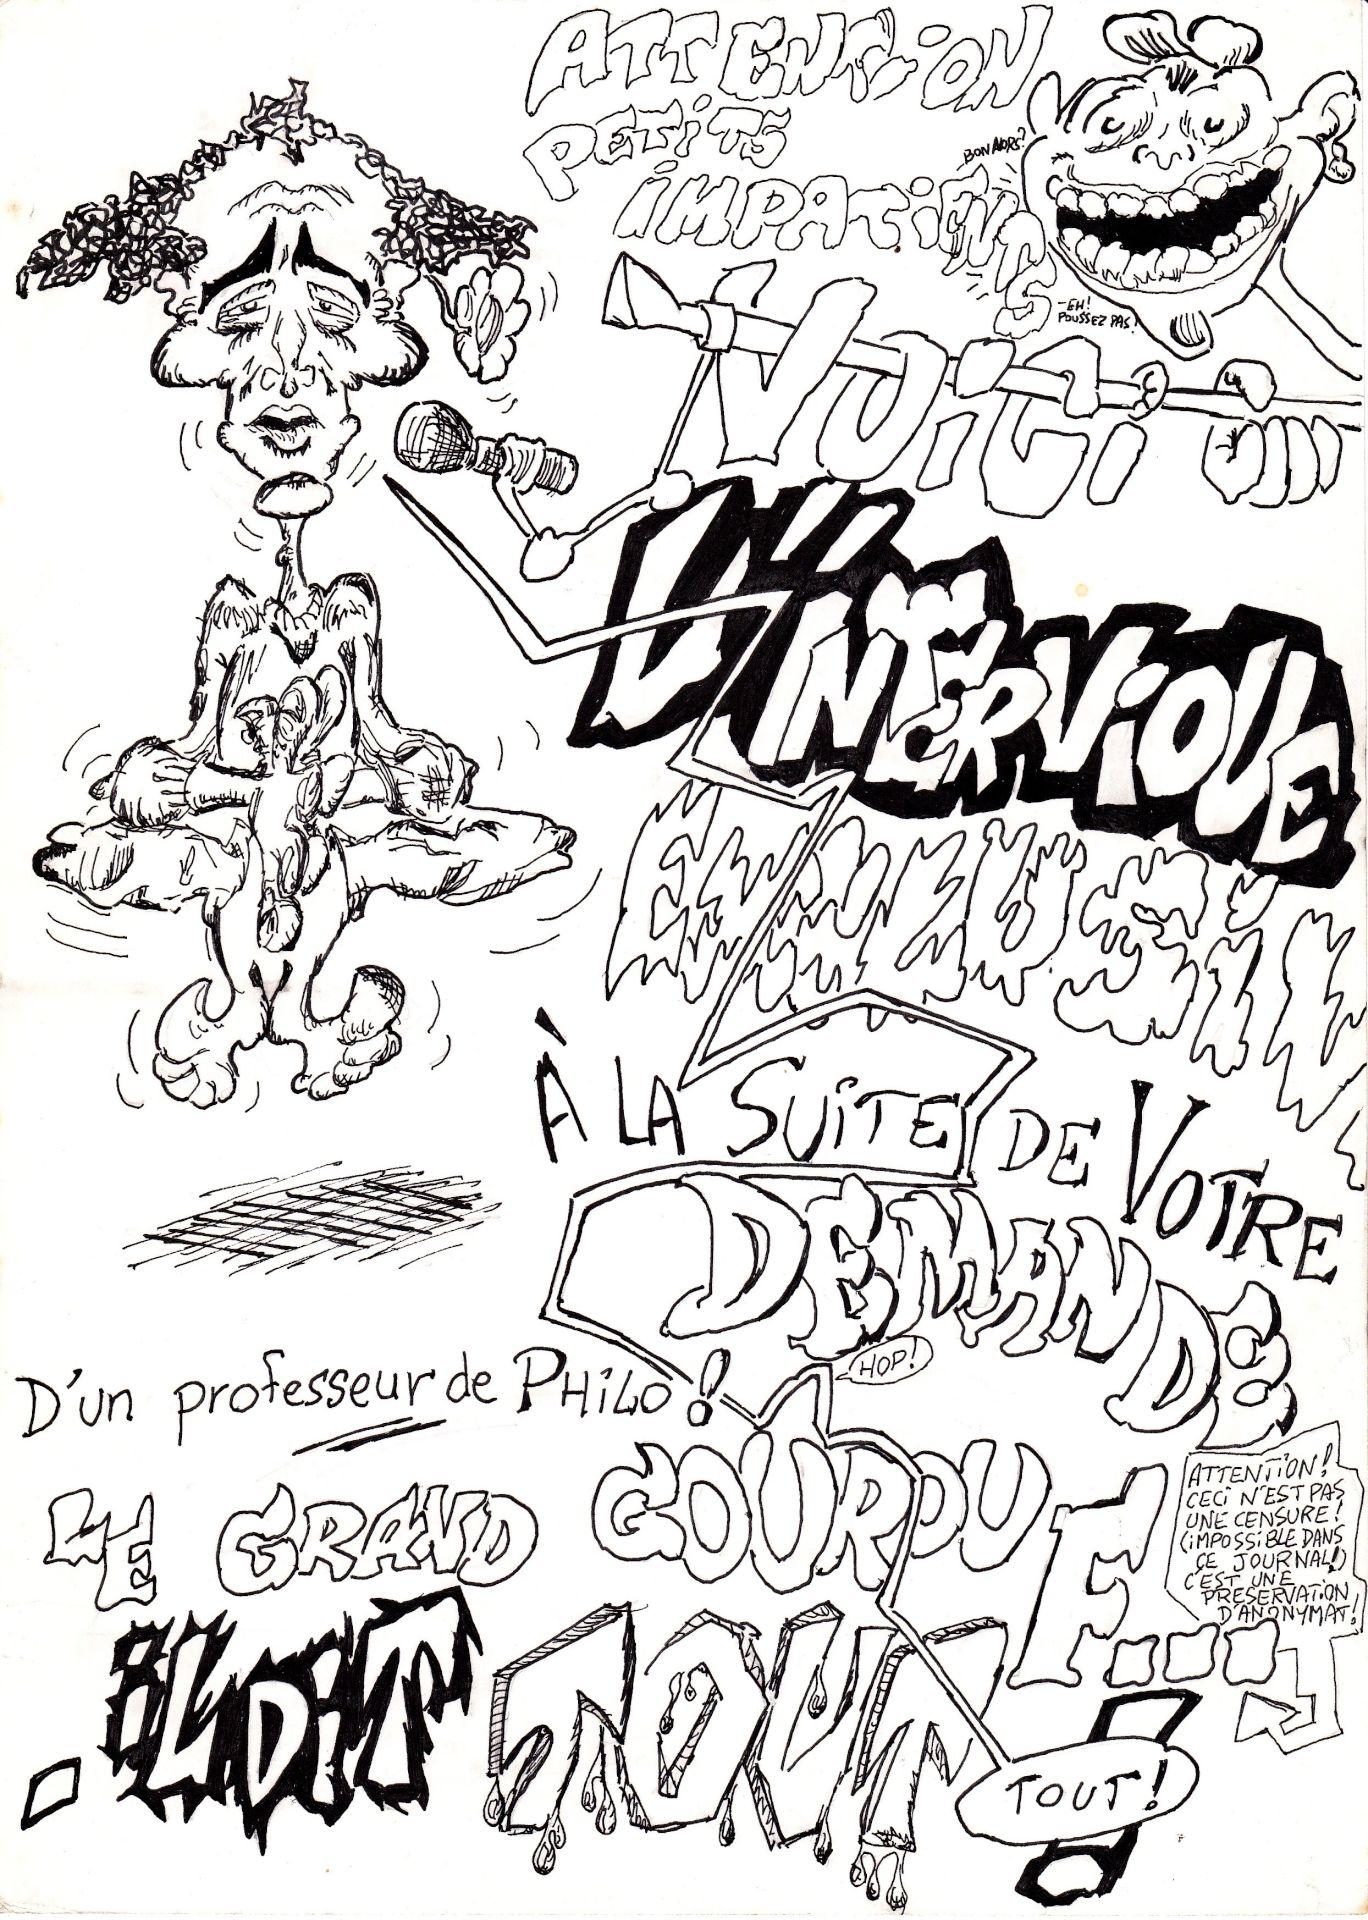 ATTENTION
PETITS
IMPATIENTS
BON ALORS?
- EH!
POUSSEZ PAS!
VOICI
L'INTERVIOUE
EXXXLUSIV
À LA SUITE DE VOTRE
DEMANDE
HOP!
D'un professeur de PHILO!
LE GRAND GOURDUF....
ATTENTION!
CECI N'EST PAS
UNE CENSURE!
(IMPOSSIBLE DANS
CE JOURNAL!)
C'EST UNE
PRESERVATION
D'ANONYMAT!
. IL DIT TOUT!
TOUT!